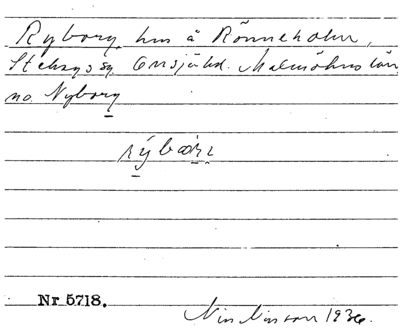 Ryborg, hus å Rönneholm,
Stehags sn. Onsjö hd. Malmöhus län
no. Nyborg
Nr 5718.
Nils Nilsson 1936.